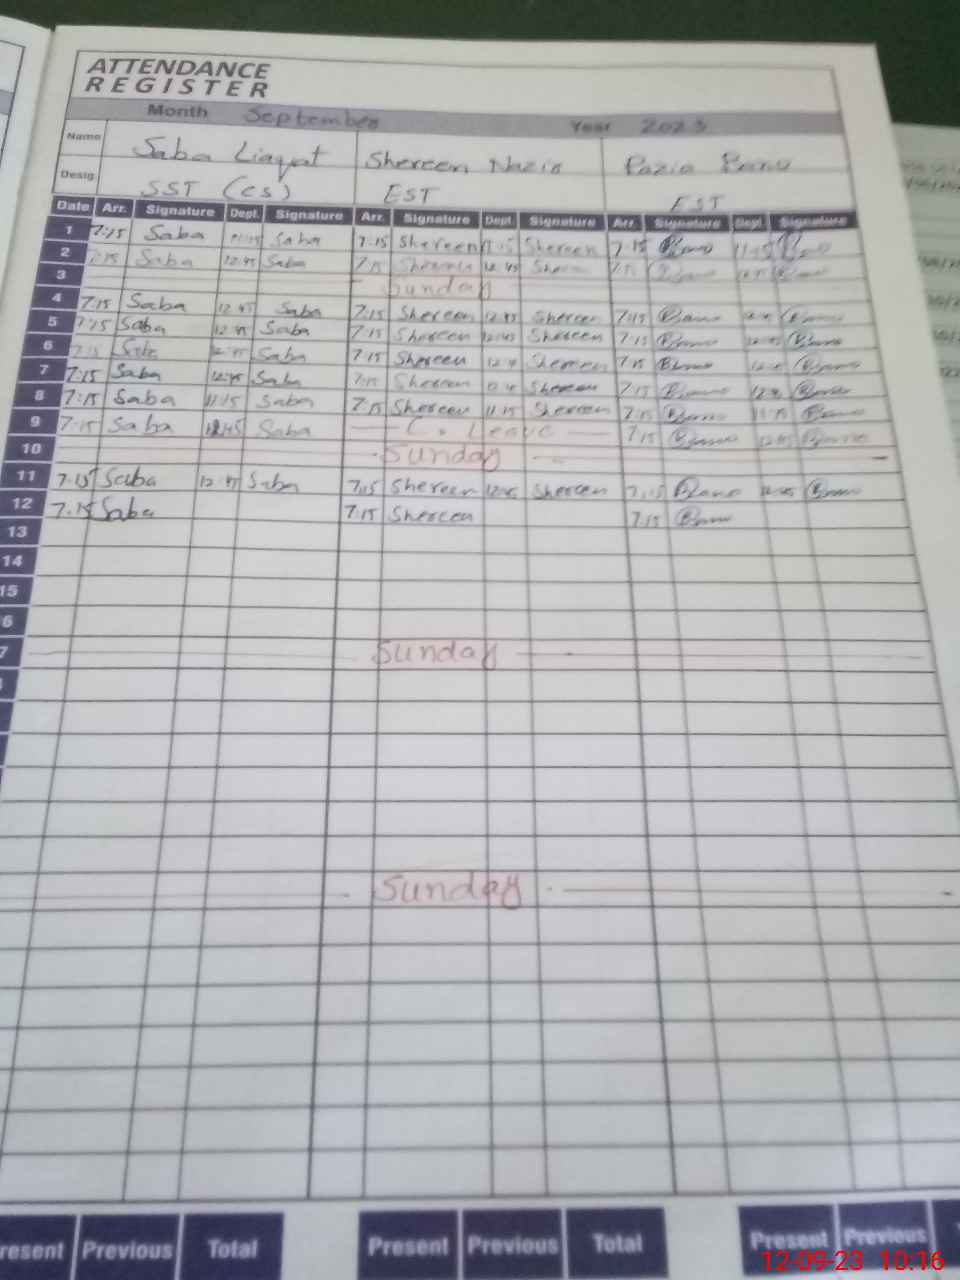 ATTENDANCE
REGISTER
Month September Year 2023
Name Saba Liaqat Shereen Nazir Bano
Desig. SST (CS) EST EST
Date Arr. Signature Dept. Signature Arr. Signature Dept. Signature Arr. Signature Dept. Signature
1 7:15 Saba 11:15 Saba 7:15 Shereen Shereen 7:15 Bano 11:15 Bano
2 7:15 Saba 12:45 Saba 7:15 Shereen 12:45 7:15 Bano Bano
3 Sunday
4 7:15 Saba 12:45 Saba 7:15 Shereen 12:45 Shereen 7:15 Bano Bano
5 7:15 Saba 12:45 Saba 7:15 Shereen 12:45 Shereen 7:15 Bano 12:45 Bano
6 7:15 Saba 12:45 Saba 7:15 Shereen Shereen 7:15 Bano Bano
7 7:15 Saba 12:45 Saba 7:15 Shereen Shereen 7:15 Bano Bano
8 7:15 Saba 11:15 Saba 7:15 Shereen 11:15 Shereen 7:15 Bano 11:15 Bano
9 7:15 Saba 12:45 Saba C. Leave 7:15 Bano 12:45 Bano
10 Sunday
11 7:15 Saba 12:45 Saba 7:15 Shereen 12:45 Shereen 7:15 Bano 12:45 Bano
12 7:15 Saba 7:15 Shereen 7:15 Bano
13
14
15
6
7 Sunday
Sunday
resent Previous Total Present Previous Total Present Previous
12-09-23 10:16